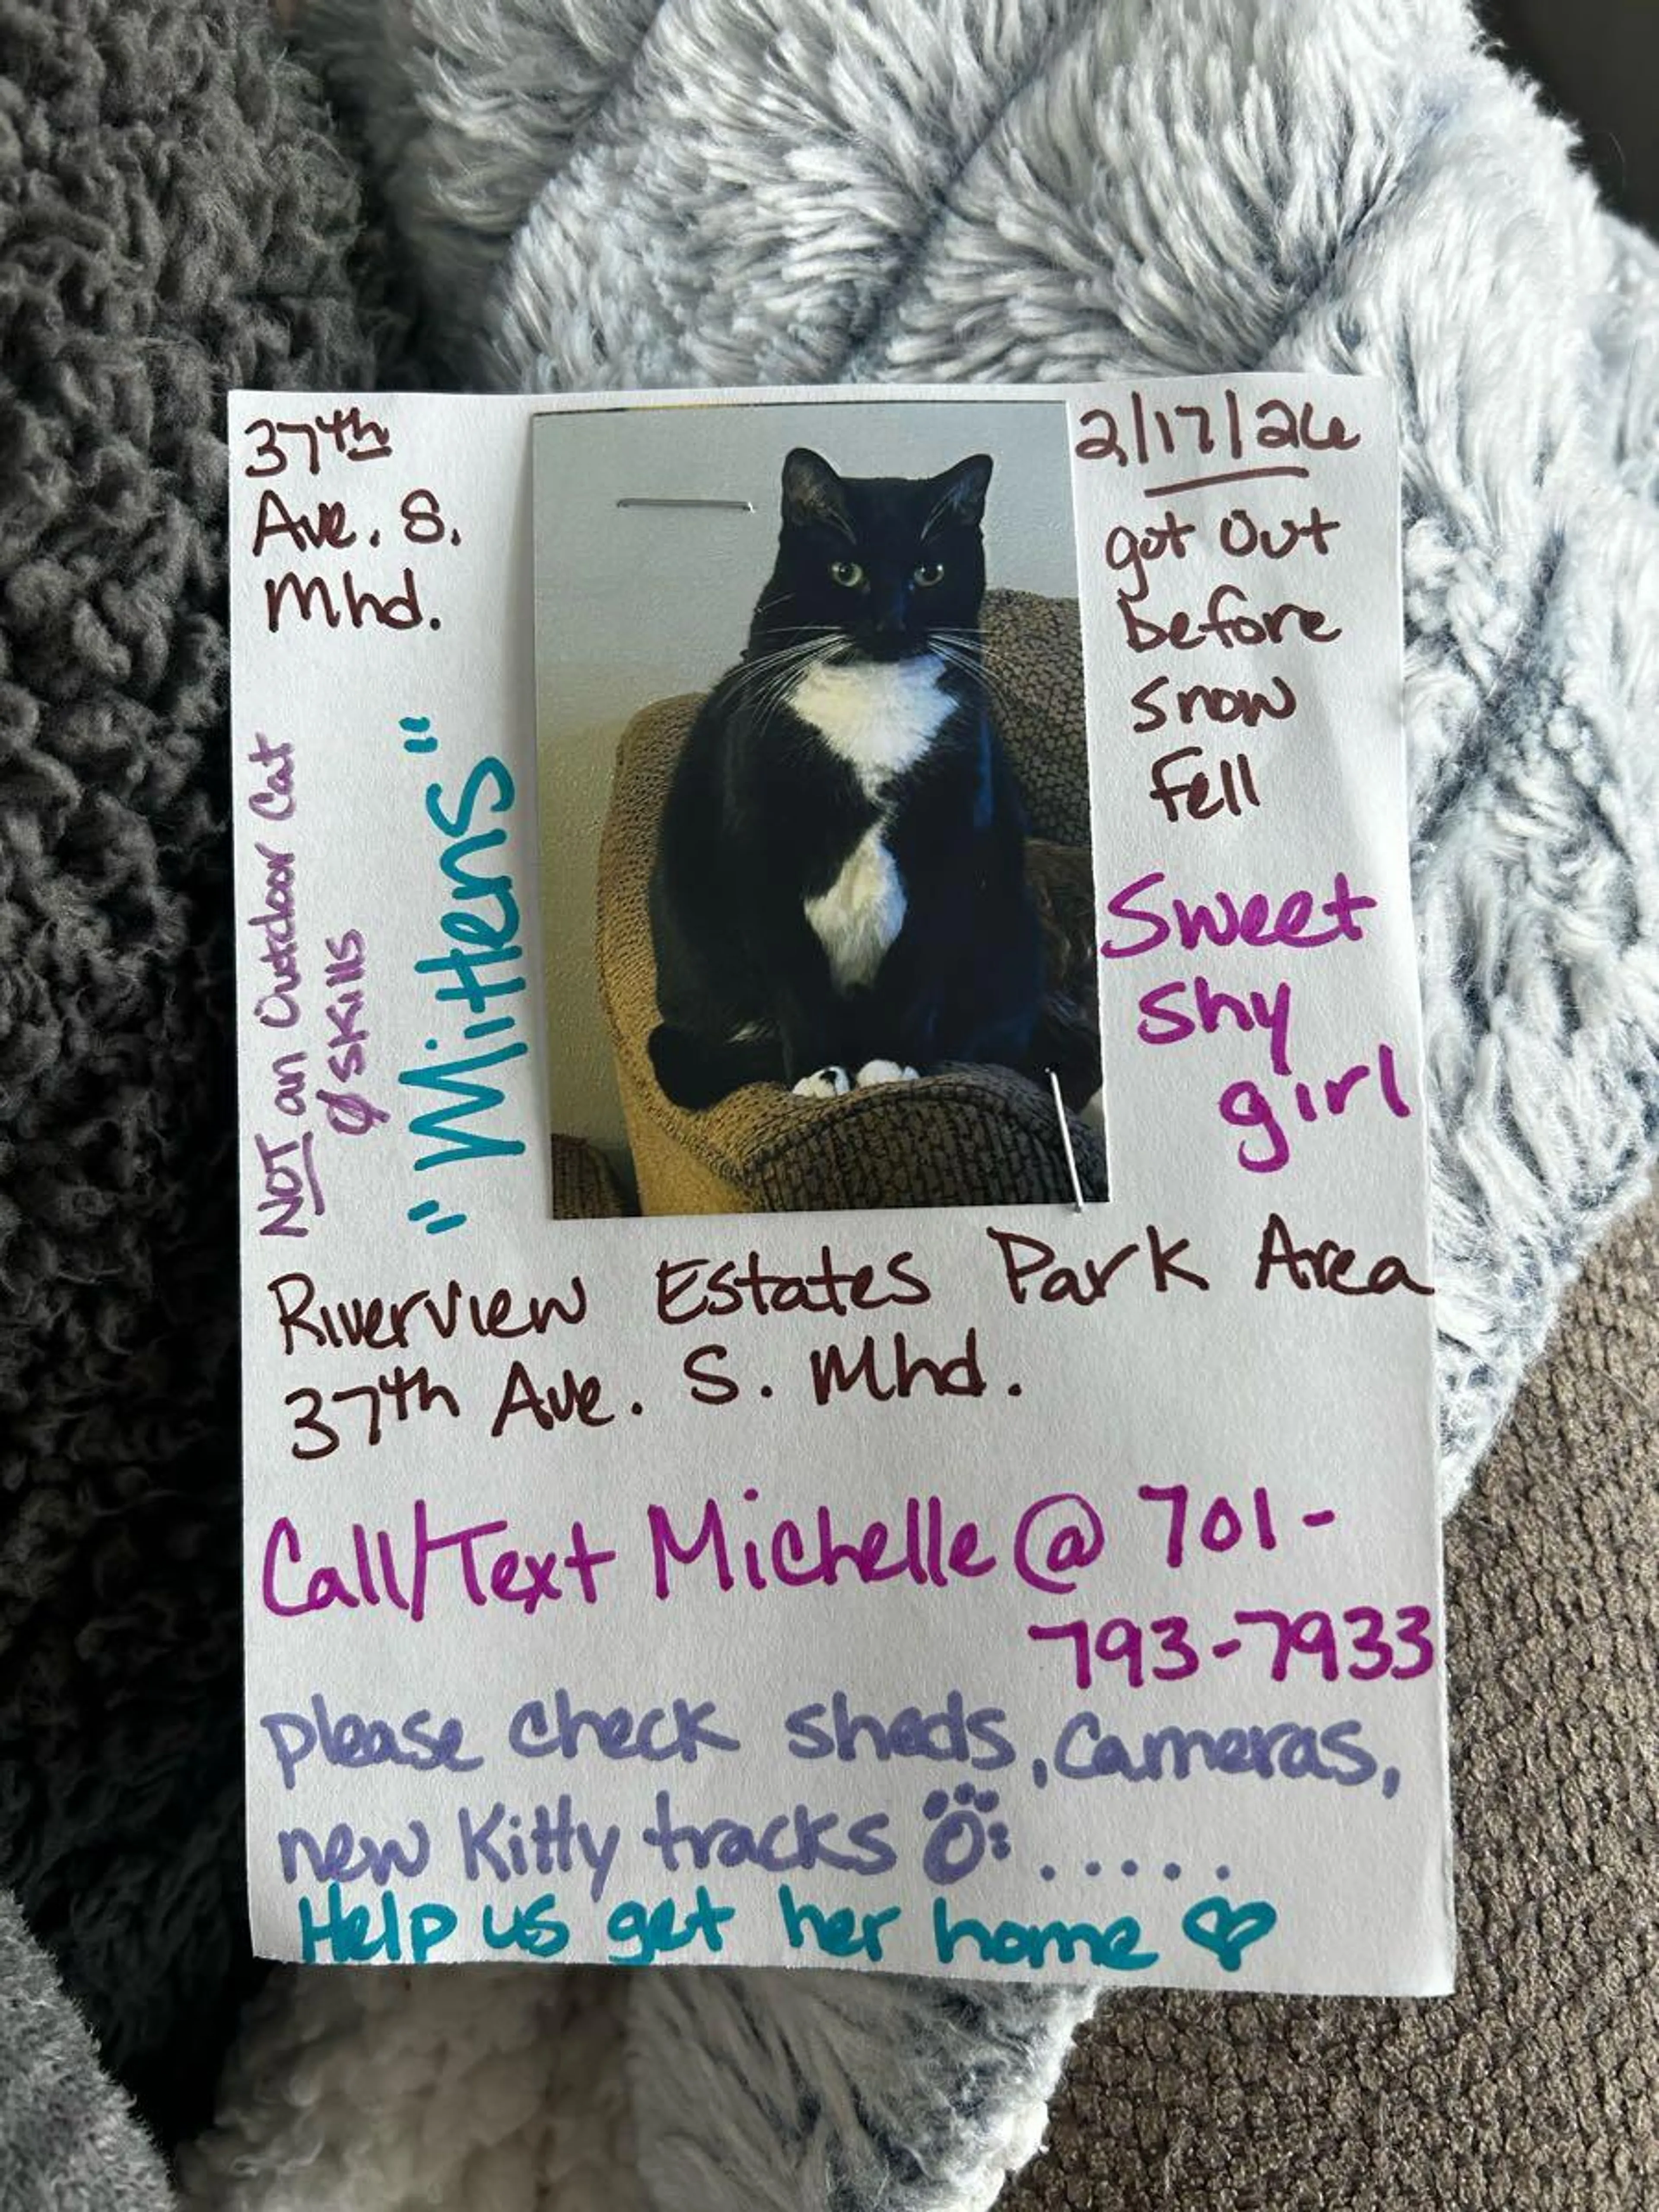 37th
Ave. S.
Mhd.
2/17/26
got out
before
snow
fell
NOT an Outdoor Cat
Ø skills
"Mittens"
Sweet
shy
girl
Riverview Estates Park Area
37th Ave. S. Mhd.
Call/Text Michelle @ 701-
793-7933
please check sheds, Cameras,
new Kitty tracks .....
Help us get her home ♡